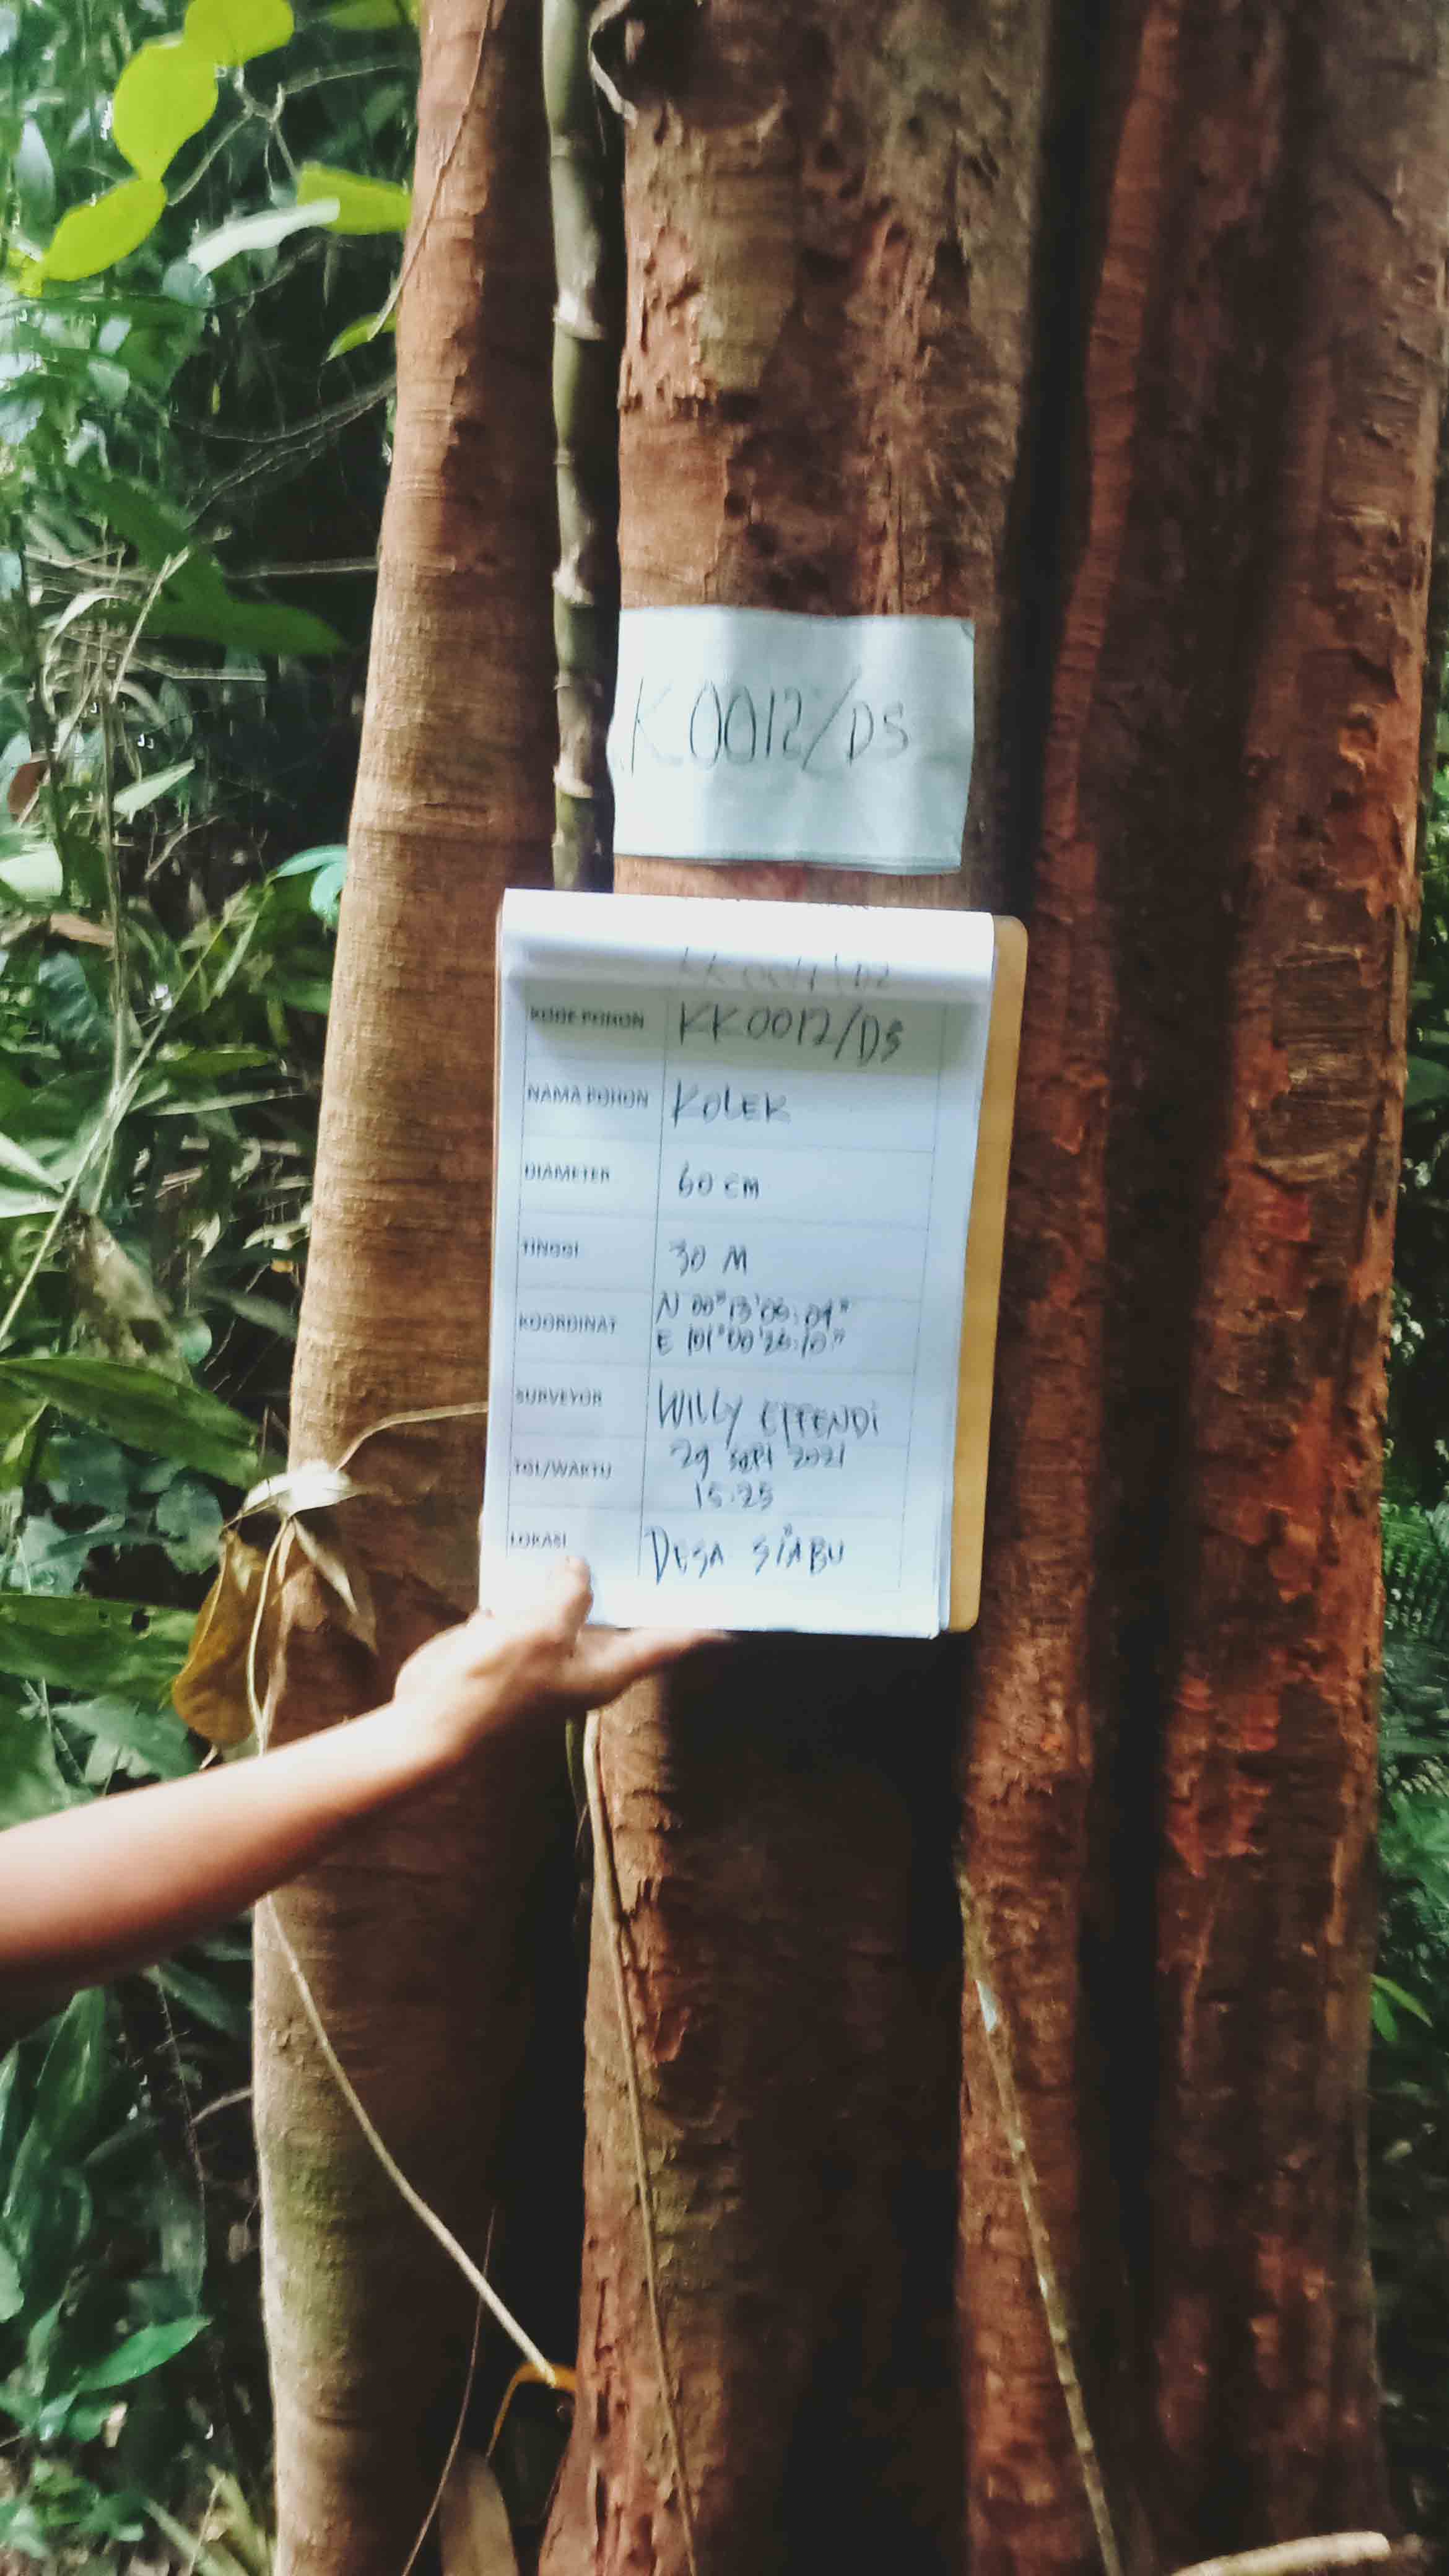 K0012/DS
KODE POHON KK0012/DS
NAMA POHON KOLEK
DIAMETER 60 CM
TINGGI 30 M
KOORDINAT N 00°13'06.09"
E 101°00'26.10"
SURVEYOR WILLY EFFENDI
TGL/WAKTU 29 SEPT 2021
15.25
LOKASI DESA SIABU